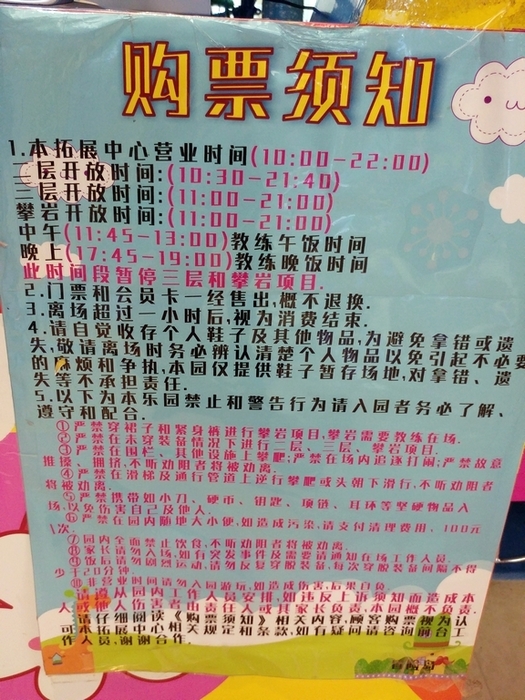 购票须知
1.本拓展中心营业时间(10:00-22:00)
二层开放时间:(10:30-21:40)
三层开放时间:(11:00-21:00)
攀岩开放时间:(11:00-21:00)
中午(11:45-13:00)教练午饭时间
晚上(17:45-19:00)教练晚饭时间
此时间段暂停三层和攀岩项目.
2.门票和会员卡一经售出,概不退换.
3.离场超过一小时后,视为消费结束.
4.请自觉收存个人鞋子及其他物品,为避免拿错或遗
失,敬请离场时务必辨认清楚个人物品以免引起不必要
的麻烦和争执,本园仅提供鞋子暂存场地,对拿错、遗
失等不承担责任.
5.以下为本乐园禁止和警告行为请入园者务必了解、
遵守和配合.
①严禁穿裙子和紧身裤进行攀岩项目,攀岩需要教练在场.
②严禁在未穿装备情况下进行二层、三层、攀岩项目.
③严禁在围栏、其他设施上攀爬;严禁在场内追逐打闹;严禁故意
推搡、拥挤,不听劝阻者将被劝离.
④严禁在滑梯及通行管道上逆行攀爬或头朝下滑行,不听劝阻者
将被劝离.
⑤严禁携带如小刀、硬币、钥匙、项链、耳环等坚硬物品入
场,以免伤害自己及他人.
⑥严禁在园内随地大小便,如造成污染,请支付清理费用,100元
1次.
⑦园内全面禁止饮食,不听劝阻者将被劝离.
⑧家长请勿入场,如有突发事件及需要请通知在场工作人员.
⑨饭后请勿剧烈运动,请勿反复穿脱装备,每次穿脱装备间隔不得
少于20分钟.
⑩非营业时间请勿入园游玩,如造成伤害,后果自负.
请遵从园内工作人员安排,如违反上诉须知而造成本
人或他人伤害者由责任人或其家长负责,本园概不负责.
请仔细阅读《购票须知》相关内容,顾客购票视为认
可本拓展中心相关规定和条款,如有疑问请咨询前台工
作人员,谢谢合作